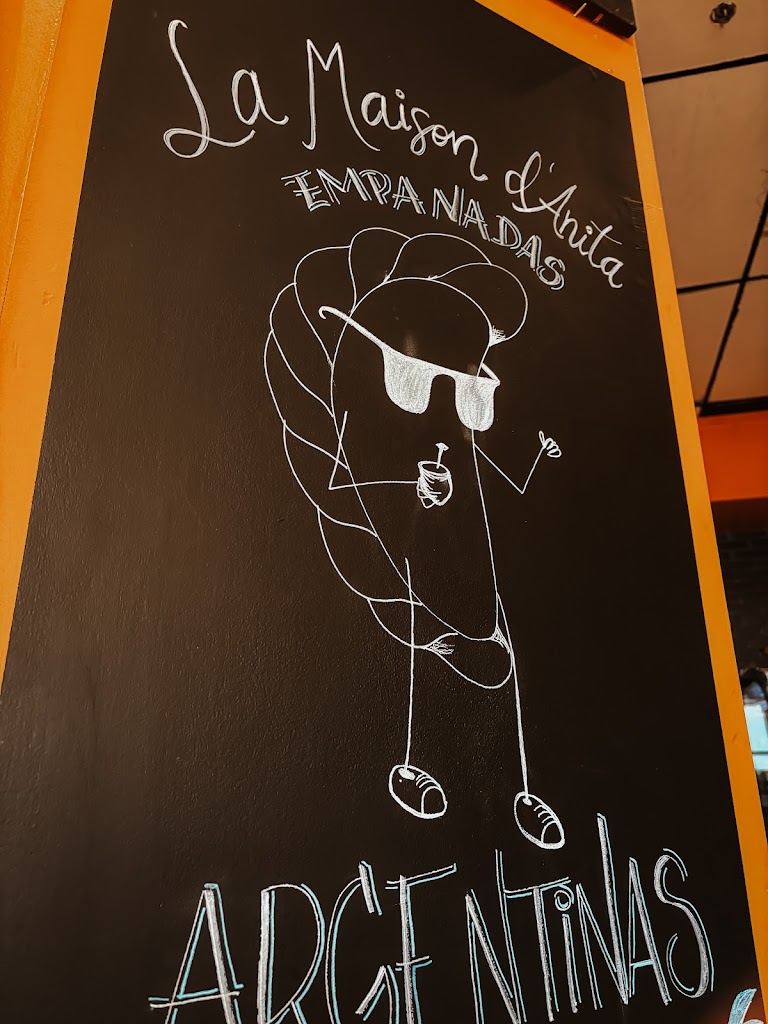 La Maison d'Anita
EMPANADAS
ARGENTINAS